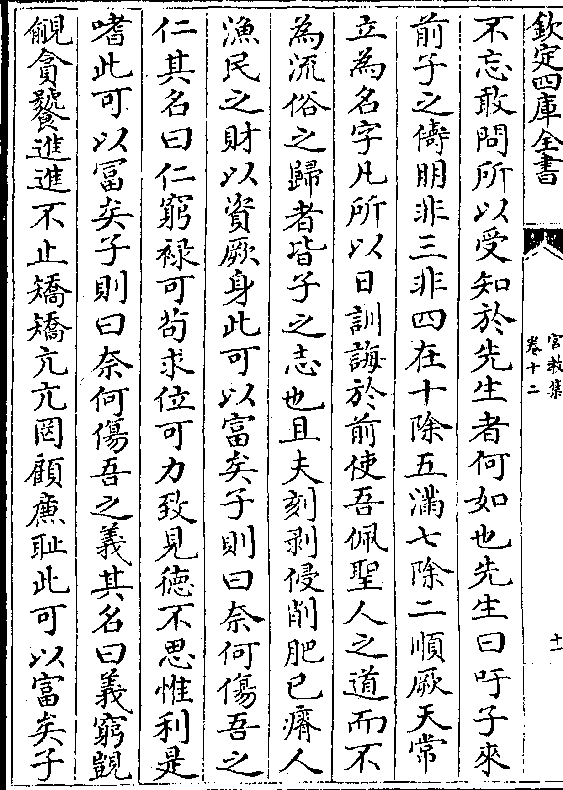 欽定四庫全書
宮教集
卷十二
十一
不忘敢問所以受知於先生者何如也先生曰吁子來
前子之儔朋非三非四在十除五滿七除二順厥天常
立為名字凡所以日訓誨於前使吾佩聖人之道而不
為流俗之歸者皆子之志也且夫刻剥侵削肥已瘠人
漁民之財以資厥身此可以富矣子則曰奈何傷吾之
仁其名曰仁窮祿可茍求位可力致見徳不思惟利是
嗜此可以冨矣子則曰奈何傷吾之義其名曰義窮覬
覦貪饕進進不止矯矯亢亢罔顧亷耻此可以富矣子